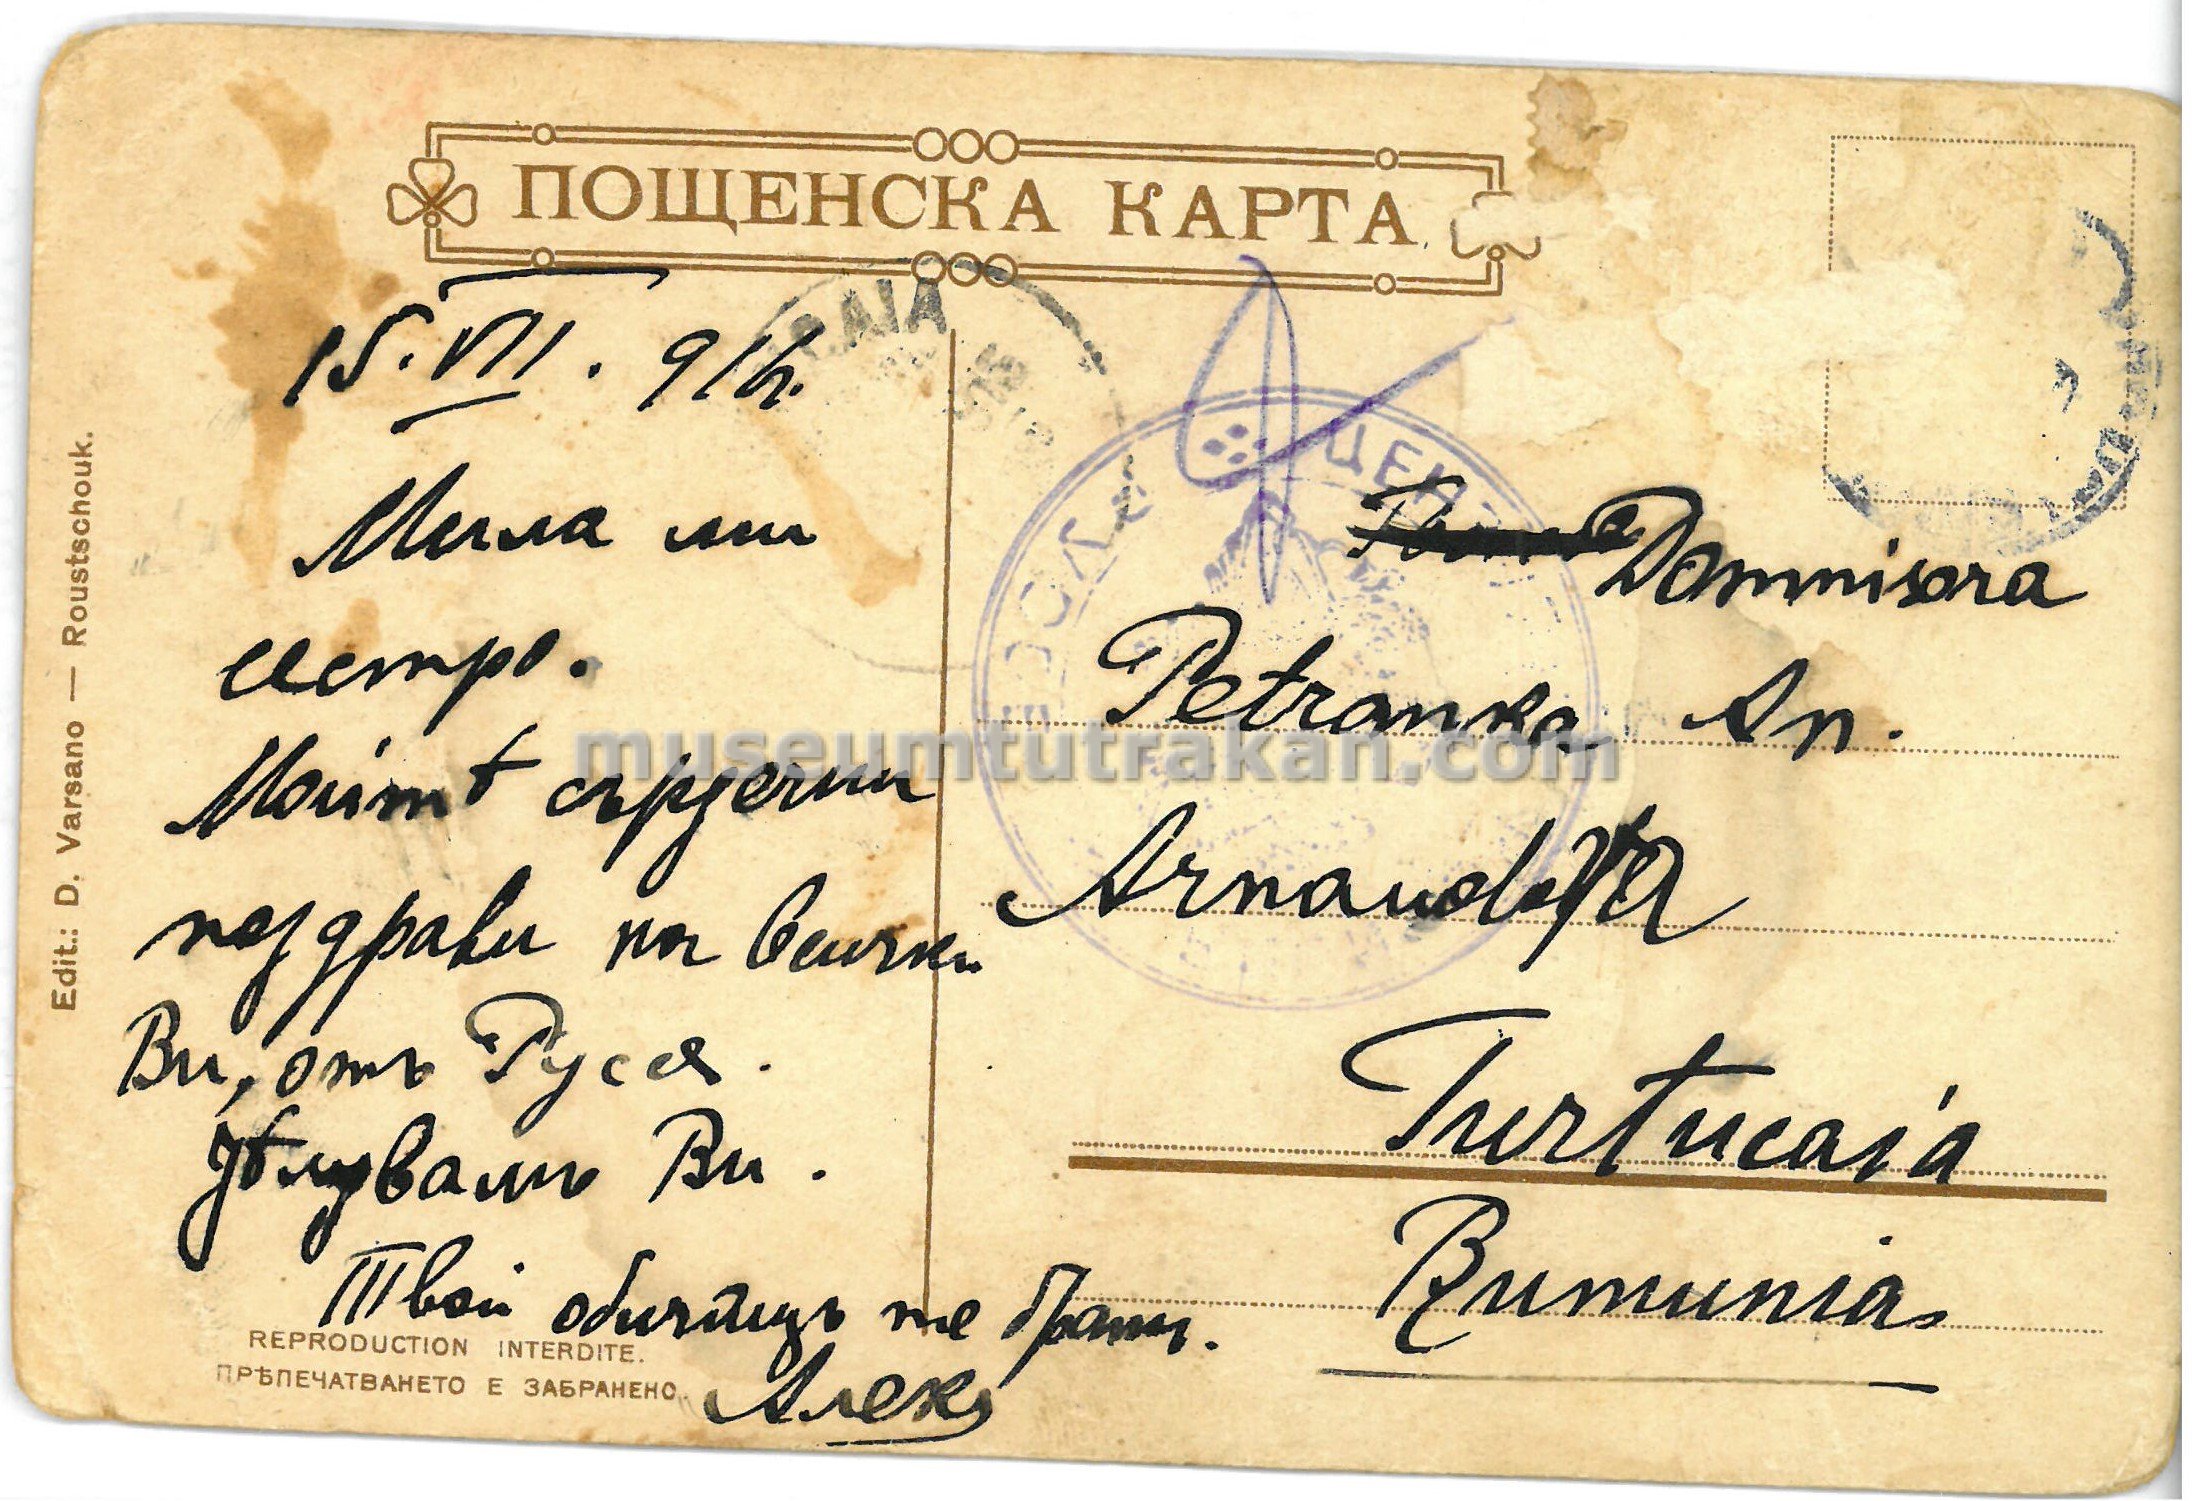 ПОЩЕНСКА КАРТА
15.VII.916.
Мила ми
сестро.
Моитѣ сърдечни
поздрави на всички
Ви, отъ Русе.
Цѣлувамъ Ви.
Твой обичащъ те братъ.
Алеко
Domnisora
Petranka An.
Arnaudova
Turtucaia
Rumunia
Edit.: D. Varsano — Roustschouk.
REPRODUCTION INTERDITE.
ПРѢПЕЧАТВАНЕТО Е ЗАБРАНЕНО.
CAIA
museumtutrakan.com